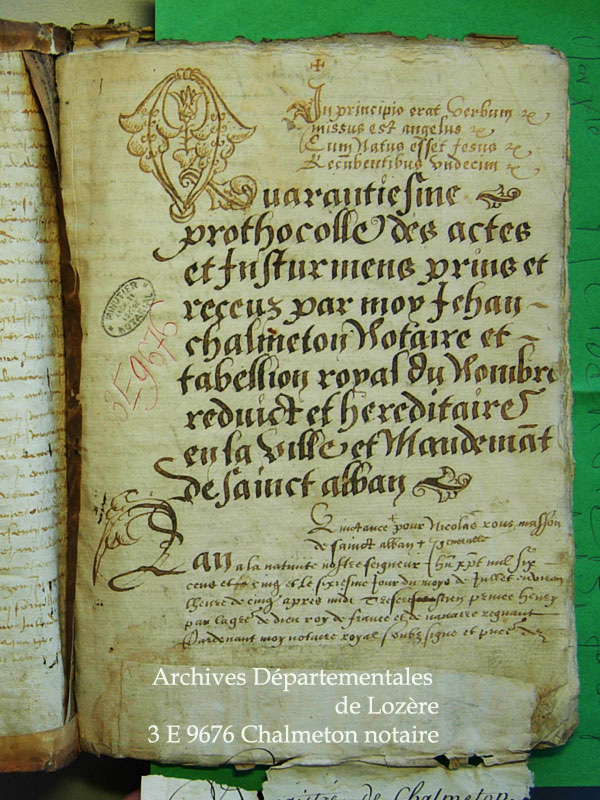 In principio erat Verbum
missus est angelus
Cum Natus esset Jesus
Recūbentibus Vndecim
Quarantiesme
prothocolle des actes
et Insturmens prins et
receuz par moy Jehan
chalmeton Notaire et
tabellion royal du Nombre
reduict et hereditaire
en la ville et Mandemāt
de sainct alban
3E9676
Quictance pour Nicolas rous, masson
de sainct alban
Lan a la nativite nostre seigneur mil six
cens et cinq et le sixiesme jour du moys de Juillet environ
lheure de cinq apres midi prince henry
par la grace de dieu roy de france et de navarre regnant
Pardevant moy notaire royal soubz signe et
Archives Départementales
de Lozère
3 E 9676 Chalmeton notaire
de Chalmeton